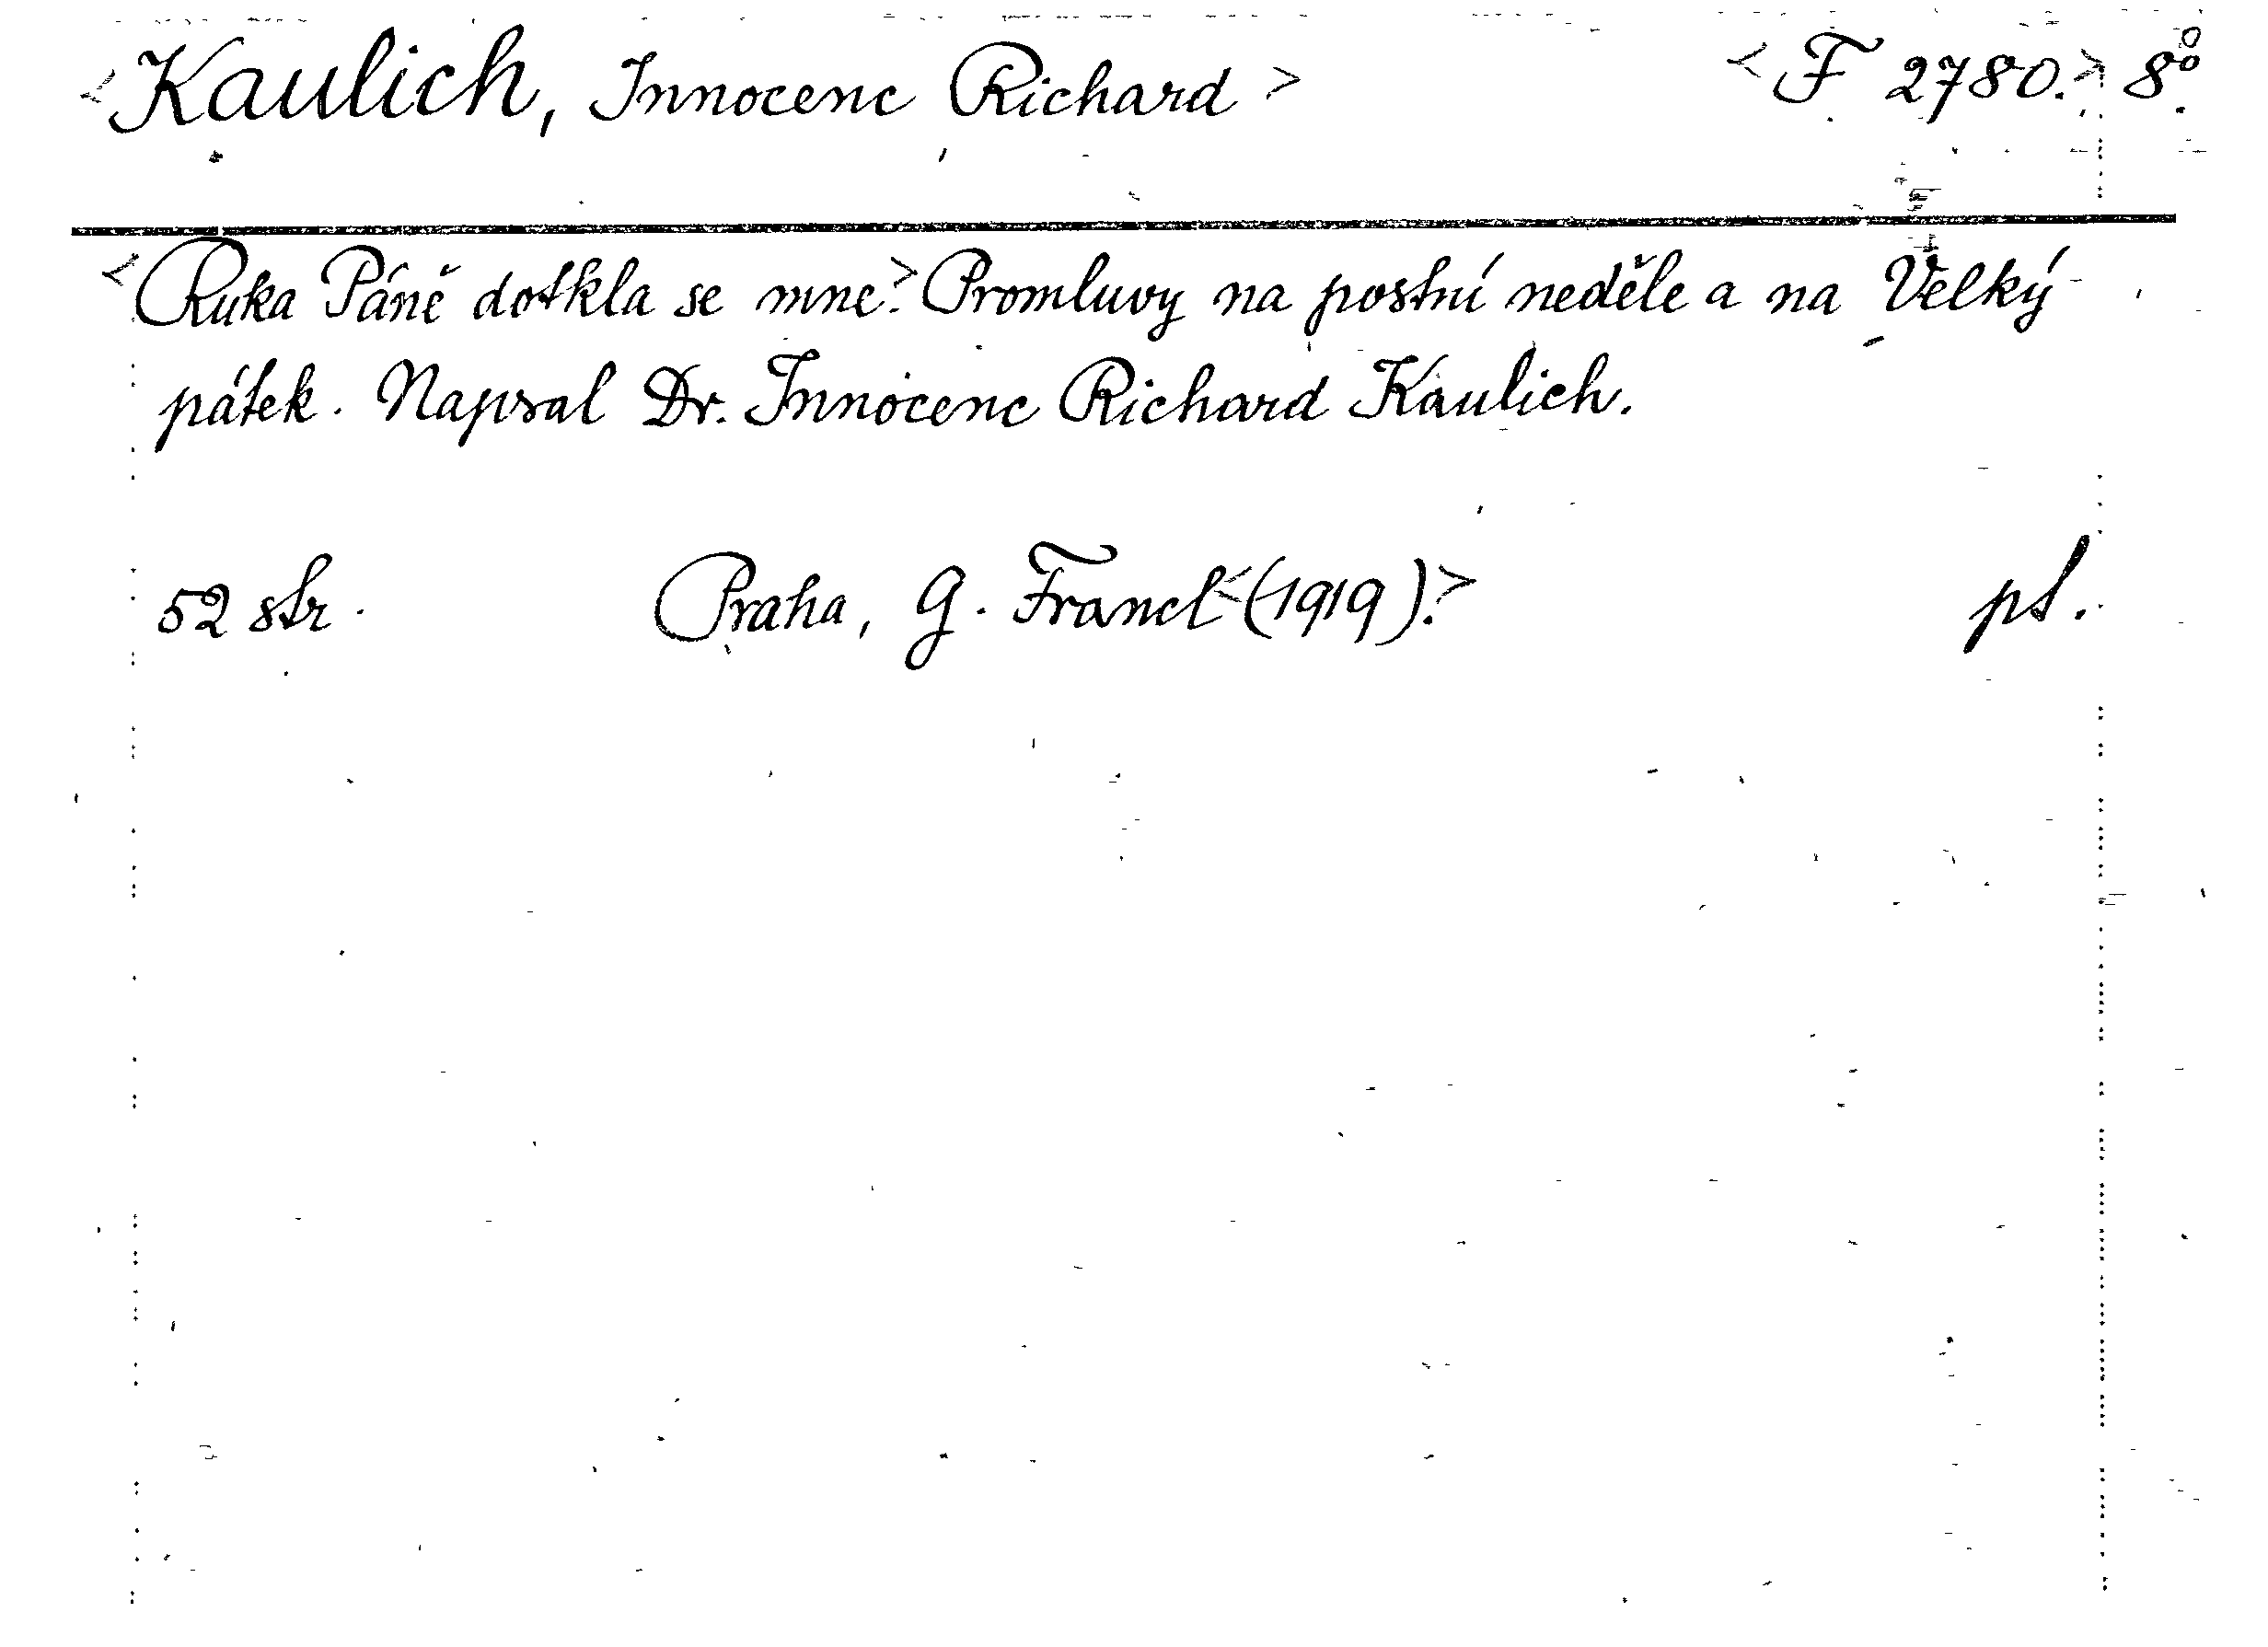 <Kaulich, Innocenc Richard> <F 2780.> 8°.
<Ruka Páně dotkla se mne.> Promluvy na postní neděle a na Velký
pátek. Napsal Dr. Innocenc Richard Kaulich.
52 str. Praha, G. Francl <(1919).> pl.